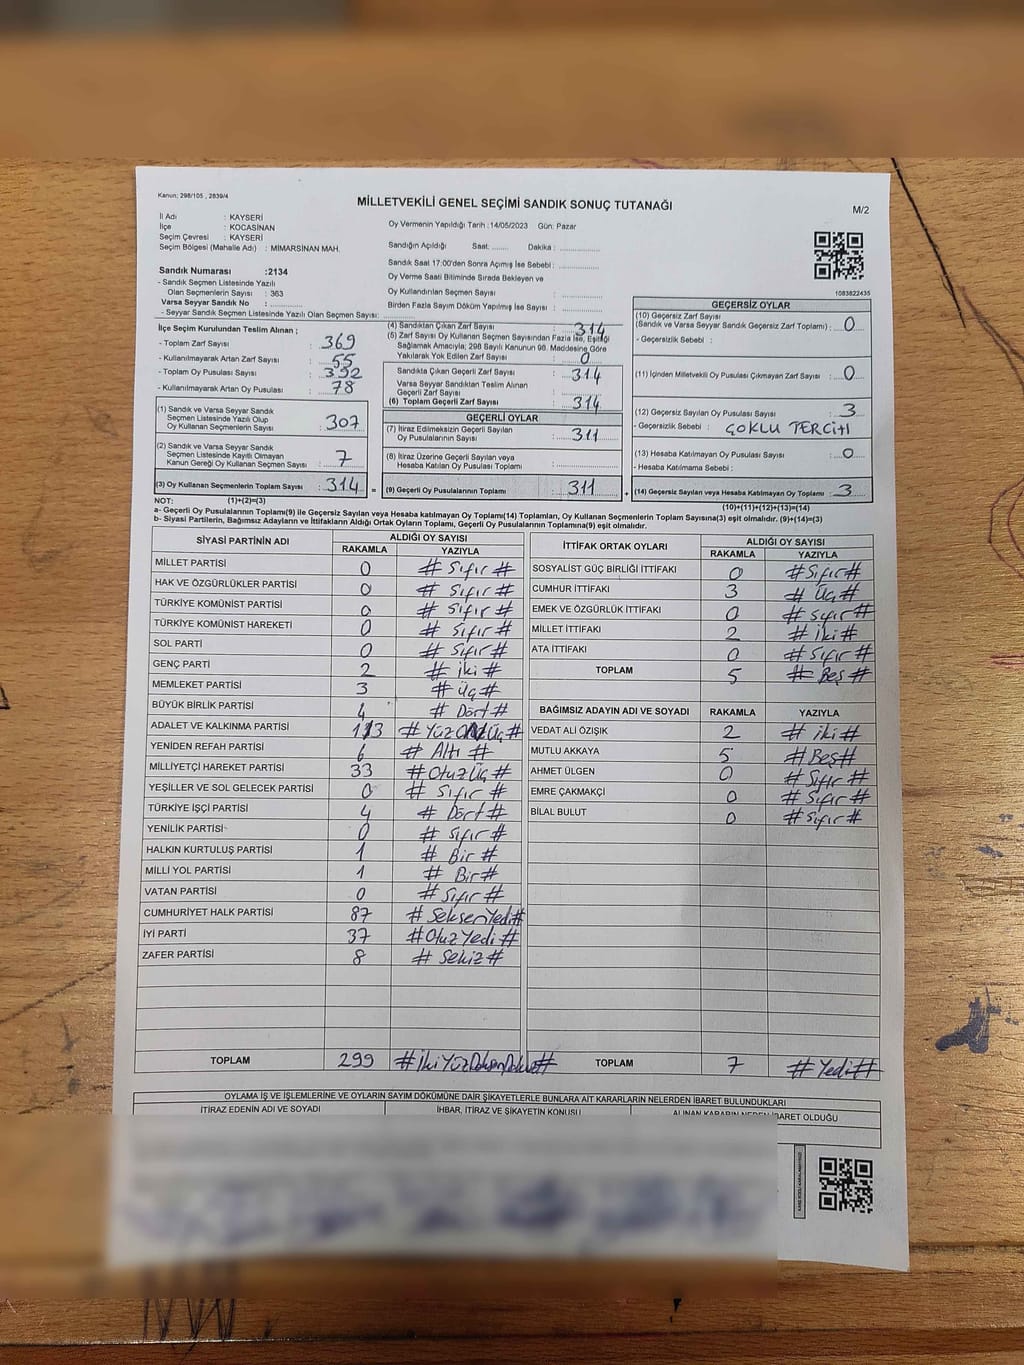 Kanun; 298/105 , 2839/4
MİLLETVEKİLİ GENEL SEÇİMİ SANDIK SONUÇ TUTANAĞI
M/2
İl Adı : KAYSERİ
İlçe : KOCASİNAN
Seçim Çevresi : KAYSERİ
Seçim Bölgesi (Mahalle Adı) : MİMARSİNAN MAH.
Oy Vermenin Yapıldığı Tarih :14/05/2023 Gün: Pazar
Sandığın Açıldığı Saat: ....... Dakika : ....................
Sandık Saat 17:00'den Sonra Açılmış İse Sebebi : ....................
Oy Verme Saati Bitiminde Sırada Bekleyen ve
Oy Kullandırılan Seçmen Sayısı : ....................
Birden Fazla Sayım Döküm Yapılmış İse Sayısı : ....................
1083822435
Sandık Numarası :2134
- Sandık Seçmen Listesinde Yazılı
Olan Seçmenlerin Sayısı : 363
Varsa Seyyar Sandık No : ....................
- Seyyar Sandık Seçmen Listesinde Yazılı Olan Seçmen Sayısı: ....................
İlçe Seçim Kurulundan Teslim Alınan ;
- Toplam Zarf Sayısı : 369
- Kullanılmayarak Artan Zarf Sayısı : 55
- Toplam Oy Pusulası Sayısı : 392
- Kullanılmayarak Artan Oy Pusulası : 78
(1) Sandık ve Varsa Seyyar Sandık
Seçmen Listesinde Yazılı Olup
Oy Kullanan Seçmenlerin Sayısı : 307
(2) Sandık ve Varsa Seyyar Sandık
Seçmen Listesinde Kayıtlı Olmayan
Kanun Gereği Oy Kullanan Seçmen Sayısı : 7
(3) Oy Kullanan Seçmenlerin Toplam Sayısı : 314 =
(1)+(2)=(3)
(4) Sandıktan Çıkan Zarf Sayısı : 314
(5) Zarf Sayısı Oy Kullanan Seçmen Sayısından Fazla İse, Eşitliği
Sağlamak Amacıyla; 298 Sayılı Kanunun 98. Maddesine Göre
Yakılarak Yok Edilen Zarf Sayısı : 0
Sandıkta Çıkan Geçerli Zarf Sayısı : 314
Varsa Seyyar Sandıktan Teslim Alınan
Geçerli Zarf Sayısı : ....................
(6) Toplam Geçerli Zarf Sayısı : 314
GEÇERLİ OYLAR
(7) İtiraz Edilmeksizin Geçerli Sayılan
Oy Pusulalarının Sayısı : 311
(8) İtiraz Üzerine Geçerli Sayılan veya
Hesaba Katılan Oy Pusulası Toplamı : ....................
(9) Geçerli Oy Pusulalarının Toplamı : 311 +
GEÇERSİZ OYLAR
(10) Geçersiz Zarf Sayısı
(Sandık ve Varsa Seyyar Sandık Geçersiz Zarf Toplamı) : 0
- Geçersizlik Sebebi :
(11) İçinden Milletvekili Oy Pusulası Çıkmayan Zarf Sayısı : 0
(12) Geçersiz Sayılan Oy Pusulası Sayısı : 3
- Geçersizlik Sebebi : ÇOKLU TERCİH
(13) Hesaba Katılmayan Oy Pusulası Sayısı : 0
- Hesaba Katılmama Sebebi :
(14) Geçersiz Sayılan veya Hesaba Katılmayan Oy Toplamı : 3
(10)+(11)+(12)+(13)=(14)
NOT:
a- Geçerli Oy Pusulalarının Toplamı(9) ile Geçersiz Sayılan veya Hesaba katılmayan Oy Toplamı(14) Toplamları, Oy Kullanan Seçmenlerin Toplam Sayısına(3) eşit olmalıdır. (9)+(14)=(3)
b- Siyasi Partilerin, Bağımsız Adayların ve İttifakların Aldığı Ortak Oyların Toplamı, Geçerli Oy Pusulalarının Toplamına(9) eşit olmalıdır.
SİYASİ PARTİNİN ADI ALDIĞI OY SAYISI
RAKAMLA YAZIYLA
MİLLET PARTİSİ 0 # Sıfır #
HAK VE ÖZGÜRLÜKLER PARTİSİ 0 # Sıfır #
TÜRKİYE KOMÜNİST PARTİSİ 0 # Sıfır #
TÜRKİYE KOMÜNİST HAREKETİ 0 # Sıfır #
SOL PARTİ 0 # Sıfır #
GENÇ PARTİ 2 # iki #
MEMLEKET PARTİSİ 3 # Üç #
BÜYÜK BİRLİK PARTİSİ 4 # Dört #
ADALET VE KALKINMA PARTİSİ 113 # YüzONÜç #
YENİDEN REFAH PARTİSİ 6 # Altı #
MİLLİYETÇİ HAREKET PARTİSİ 33 #OtuzÜç #
YEŞİLLER VE SOL GELECEK PARTİSİ 0 # Sıfır #
TÜRKİYE İŞÇİ PARTİSİ 4 # Dört #
YENİLİK PARTİSİ 0 # Sıfır #
HALKIN KURTULUŞ PARTİSİ 1 # Bir #
MİLLİ YOL PARTİSİ 1 # Bir #
VATAN PARTİSİ 0 # Sıfır #
CUMHURİYET HALK PARTİSİ 87 # SeksenYedi #
İYİ PARTİ 37 #OtuzYedi #
ZAFER PARTİSİ 8 # Sekiz #
TOPLAM 299 #İkiYüzDoksanDokuz#
İTTİFAK ORTAK OYLARI ALDIĞI OY SAYISI
RAKAMLA YAZIYLA
SOSYALİST GÜÇ BİRLİĞİ İTTİFAKI 0 #Sıfır#
CUMHUR İTTİFAKI 3 # Üç #
EMEK VE ÖZGÜRLÜK İTTİFAKI 0 # Sıfır #
MİLLET İTTİFAKI 2 # iki #
ATA İTTİFAKI 0 # Sıfır #
TOPLAM 5 # Beş #
BAĞIMSIZ ADAYIN ADI VE SOYADI RAKAMLA YAZIYLA
VEDAT ALİ ÖZIŞIK 2 # iki #
MUTLU AKKAYA 5 #Beş#
AHMET ÜLGEN 0 # Sıfır #
EMRE ÇAKMAKÇİ 0 # Sıfır #
BİLAL BULUT 0 # Sıfır #
TOPLAM 7 # Yedi #
OYLAMA İŞ VE İŞLEMLERİNE VE OYLARIN SAYIM DÖKÜMÜNE DAİR ŞİKAYETLERLE BUNLARA AİT KARARLARIN NELERDEN İBARET BULUNDUKLARI
İTİRAZ EDENİN ADI VE SOYADI İHBAR, İTİRAZ VE ŞİKAYETİN KONUSU ALINAN KARARIN NEDEN İBARET OLDUĞU